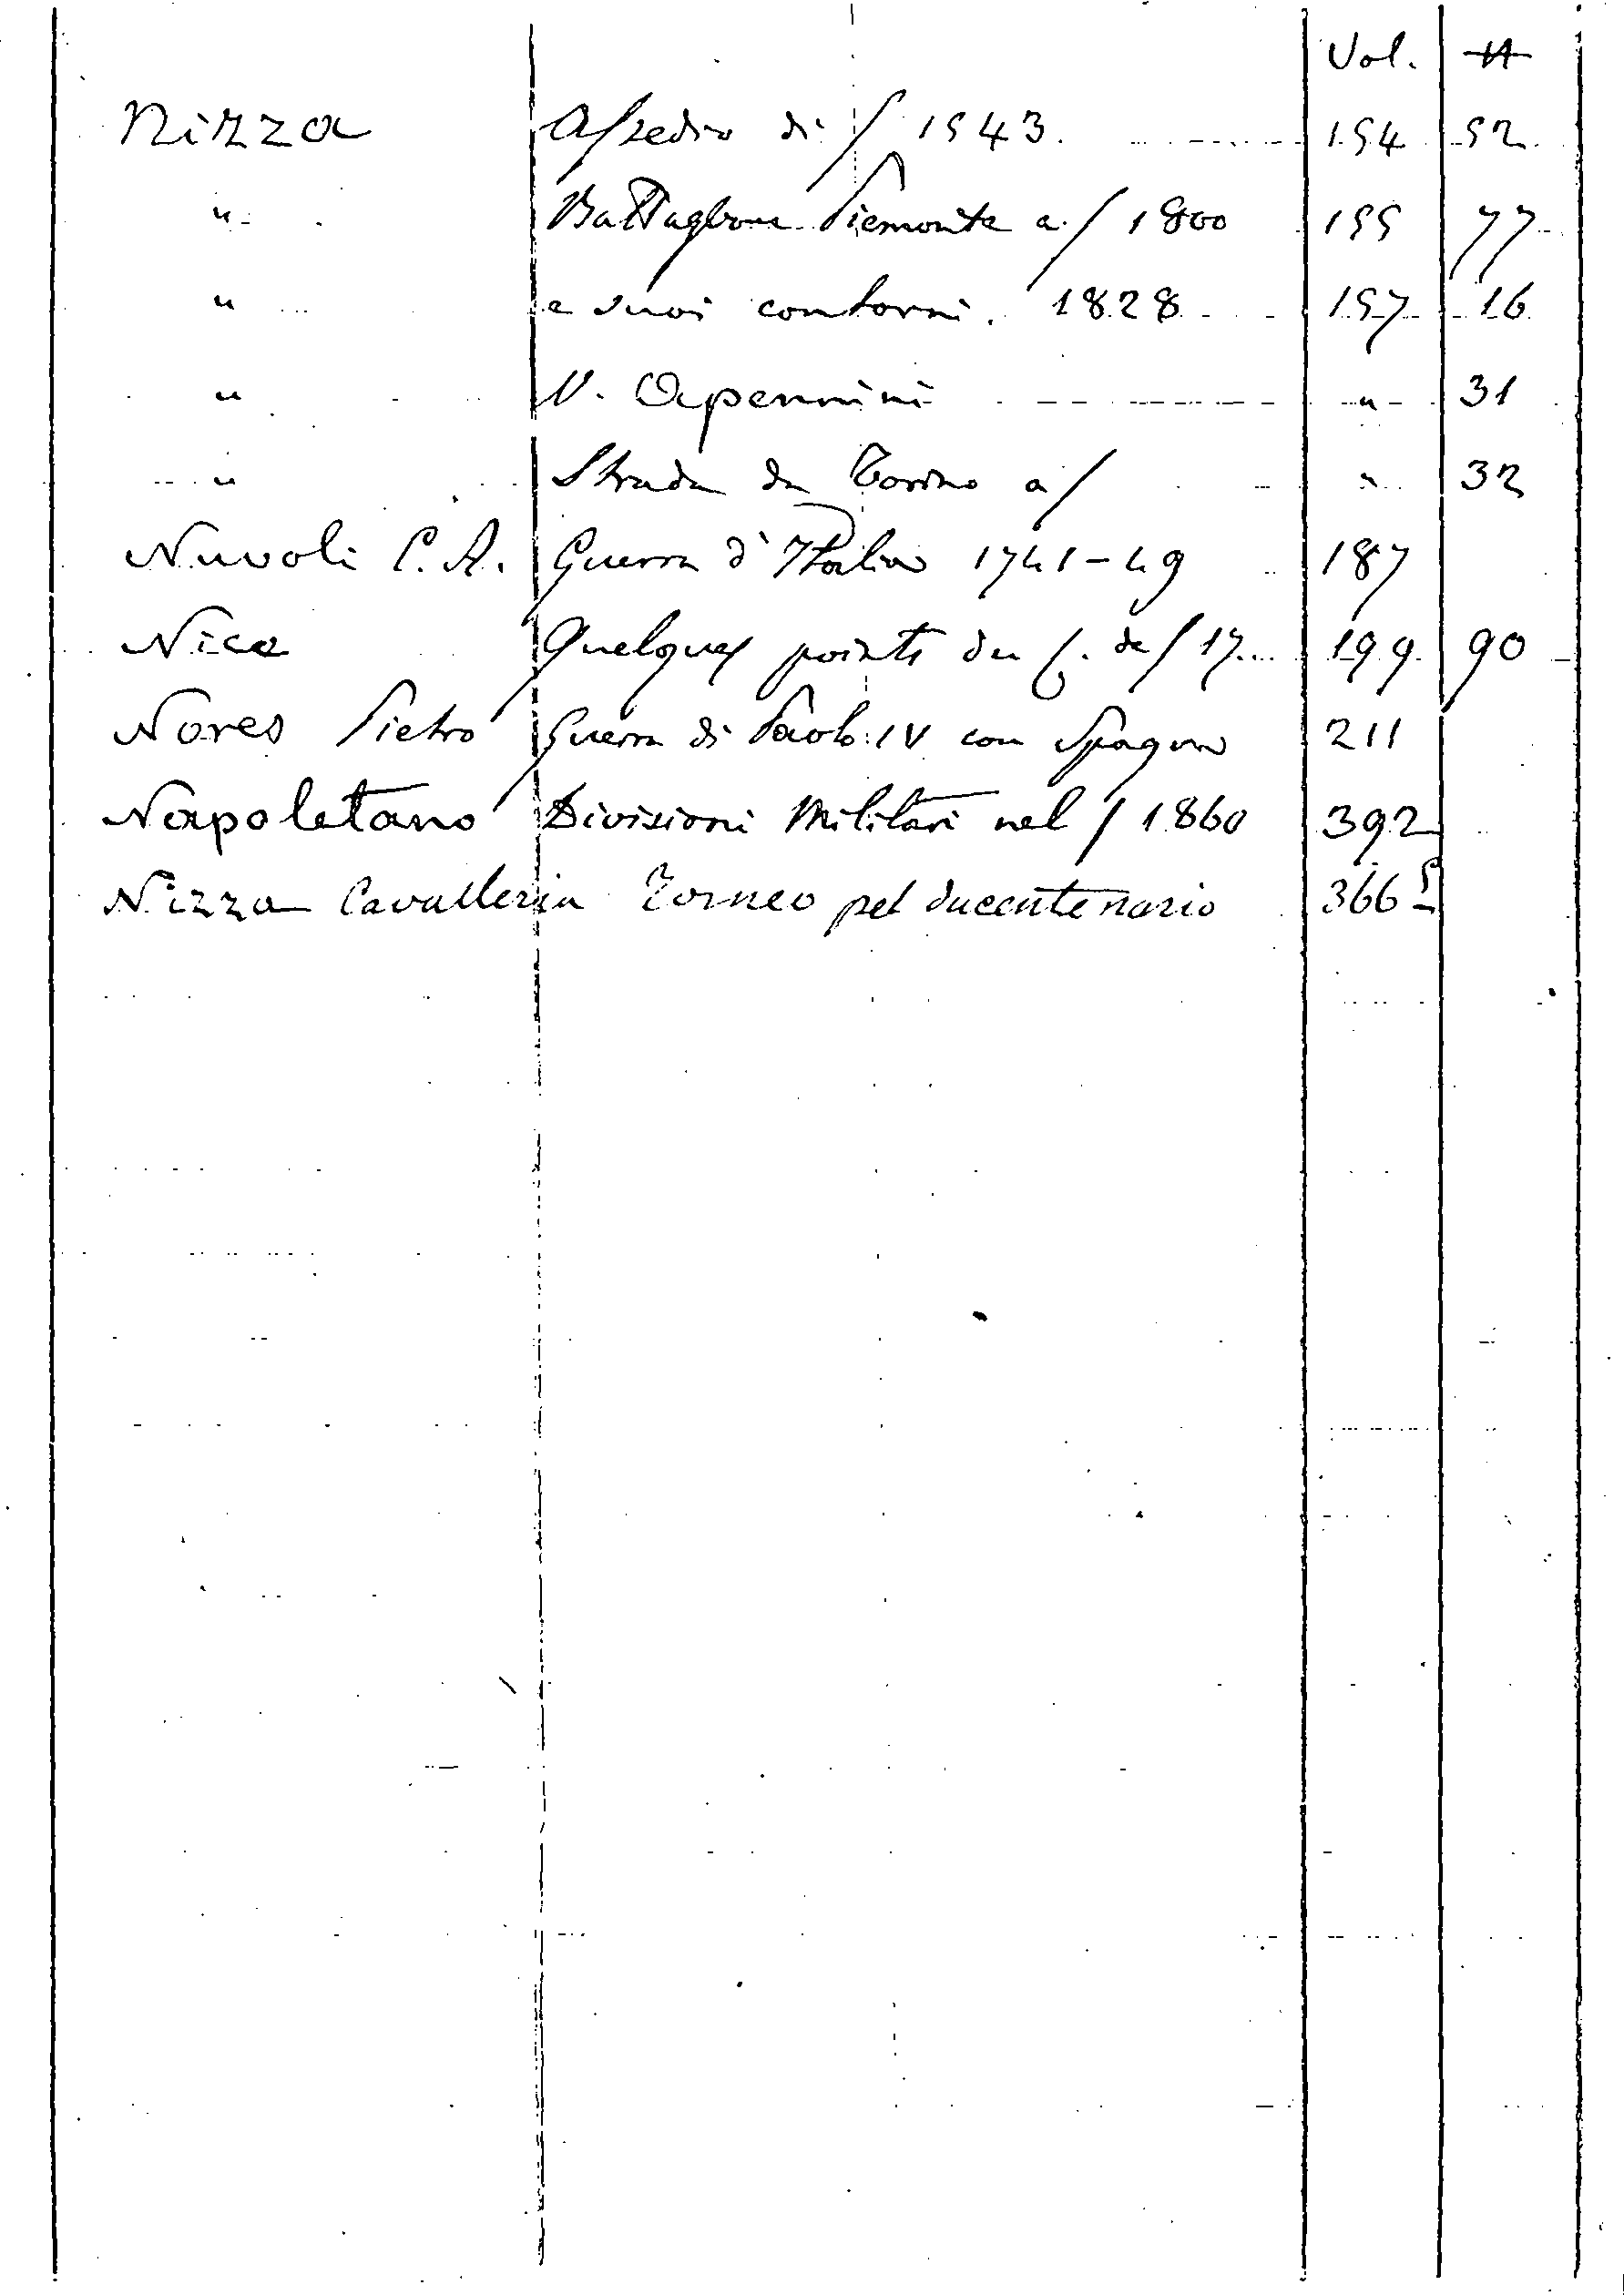 Vol. N
Nizza Assedio di / 1543. 154 52
" Battaglione Piemonte a / 1800 155 77
" e suoi contorni. 1828 157 16
" V. Apennini " 31
" Strada da Torino a / " 32
Nuvoli C. A. Guerra d'Italia 1741-49 187
Nice Quelques points du C. de / 17... 199 90
Nores Pietro Guerra di Paolo IV con Spagna 211
Napoletano Divisioni Militari nel / 1860 392
Nizza Cavalleria Torneo pel ducentenario 366